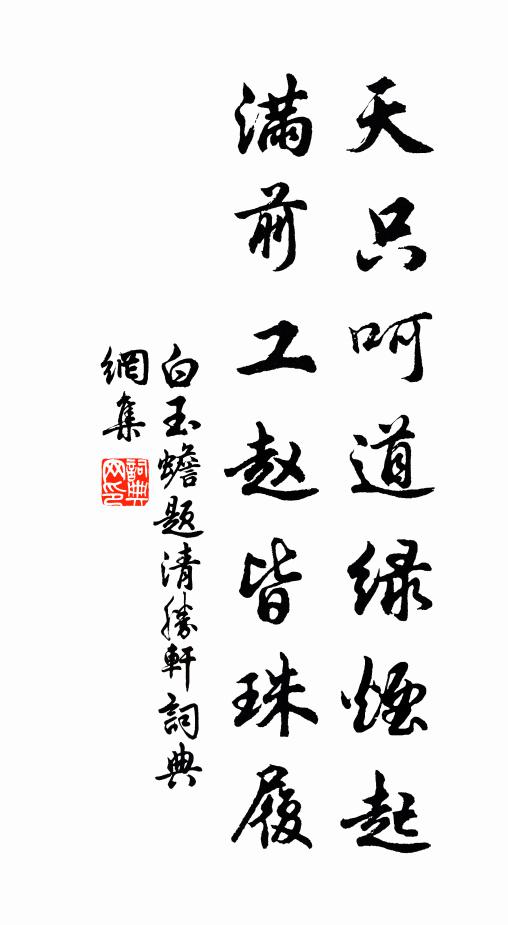 天只呵道緑煙起
满前工赵皆珠履
白玉蟾题清勝軒詞典
網集
詞典網印